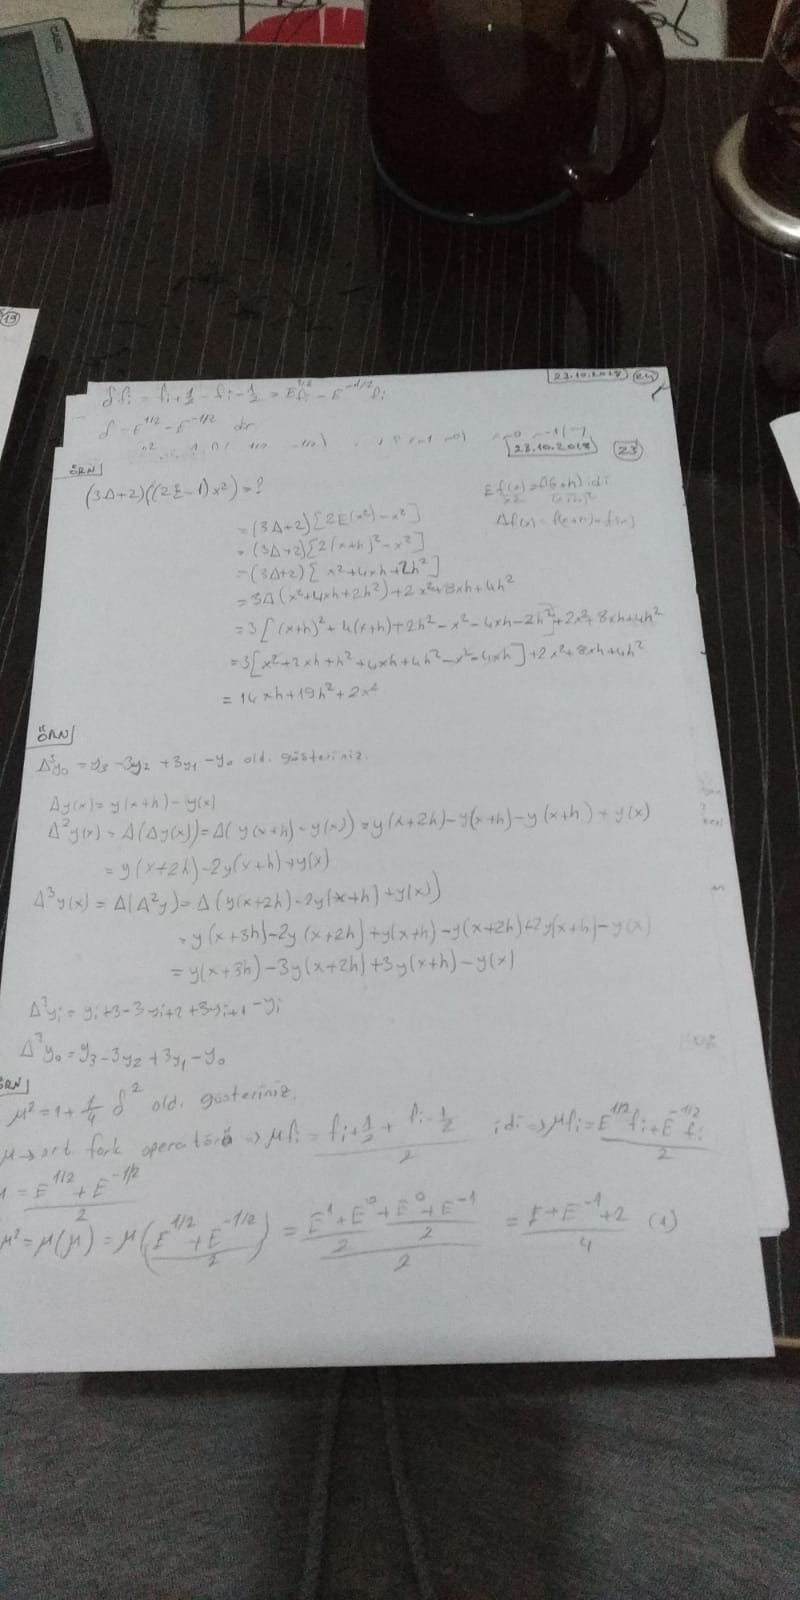 CASIO
19
23.10.2018 24
δfi = fi+1/2 - fi-1/2 = E^1/2 fi - E^-1/2 fi
δ = E^1/2 - E^-1/2 dir
23.10.2018 23
ÖRN
(3Δ+2)((2E-1)x²)=?
Ef(x)=f(x+h) idi
= (3Δ+2)[2E(x²)-x²]
Δf(x) = f(x+h)-f(x)
= (3Δ+2)[2(x+h)²-x²]
= (3Δ+2)[x²+4xh+2h²]
= 3Δ(x²+4xh+2h²)+2x²+8xh+4h²
= 3[(x+h)²+4(x+h)+2h²-x²-4xh-2h²]+2x²+8xh+4h²
= 3[x²+2xh+h²+4xh+4h²-x²-4xh]+2x²+8xh+4h²
= 14xh+19h²+2x²
ÖRN
Δ³y₀ = y₃-3y₂+3y₁-y₀ old. gösteriniz.
Δy(x) = y(x+h)-y(x)
Δ²y(x) = Δ(Δy(x)) = Δ(y(x+h)-y(x)) = y(x+2h)-y(x+h)-y(x+h)+y(x)
= y(x+2h)-2y(x+h)+y(x)
Δ³y(x) = Δ(Δ²y) = Δ(y(x+2h)-2y(x+h)+y(x))
= y(x+3h)-2y(x+2h)+y(x+h)-y(x+2h)+2y(x+h)-y(x)
= y(x+3h)-3y(x+2h)+3y(x+h)-y(x)
Δ³yi = yi+3-3yi+2+3yi+1-yi
Δ³y₀ = y₃-3y₂+3y₁-y₀
ÖRN
μ² = 1+1/4 δ² old. gösteriniz.
μ → ort fark operatörü ⇒ μfi = (fi+1/2 + fi-1/2)/2 idi ⇒ μfi = (E^1/2 fi + E^-1/2 fi)/2
= (E^1/2 + E^-1/2)/2
μ² = μ(μ) = μ((E^1/2 + E^-1/2)/2) = ((E^1+E^0)/2 + (E^0+E^-1)/2)/2 = (E+E^-1+2)/4 (1)